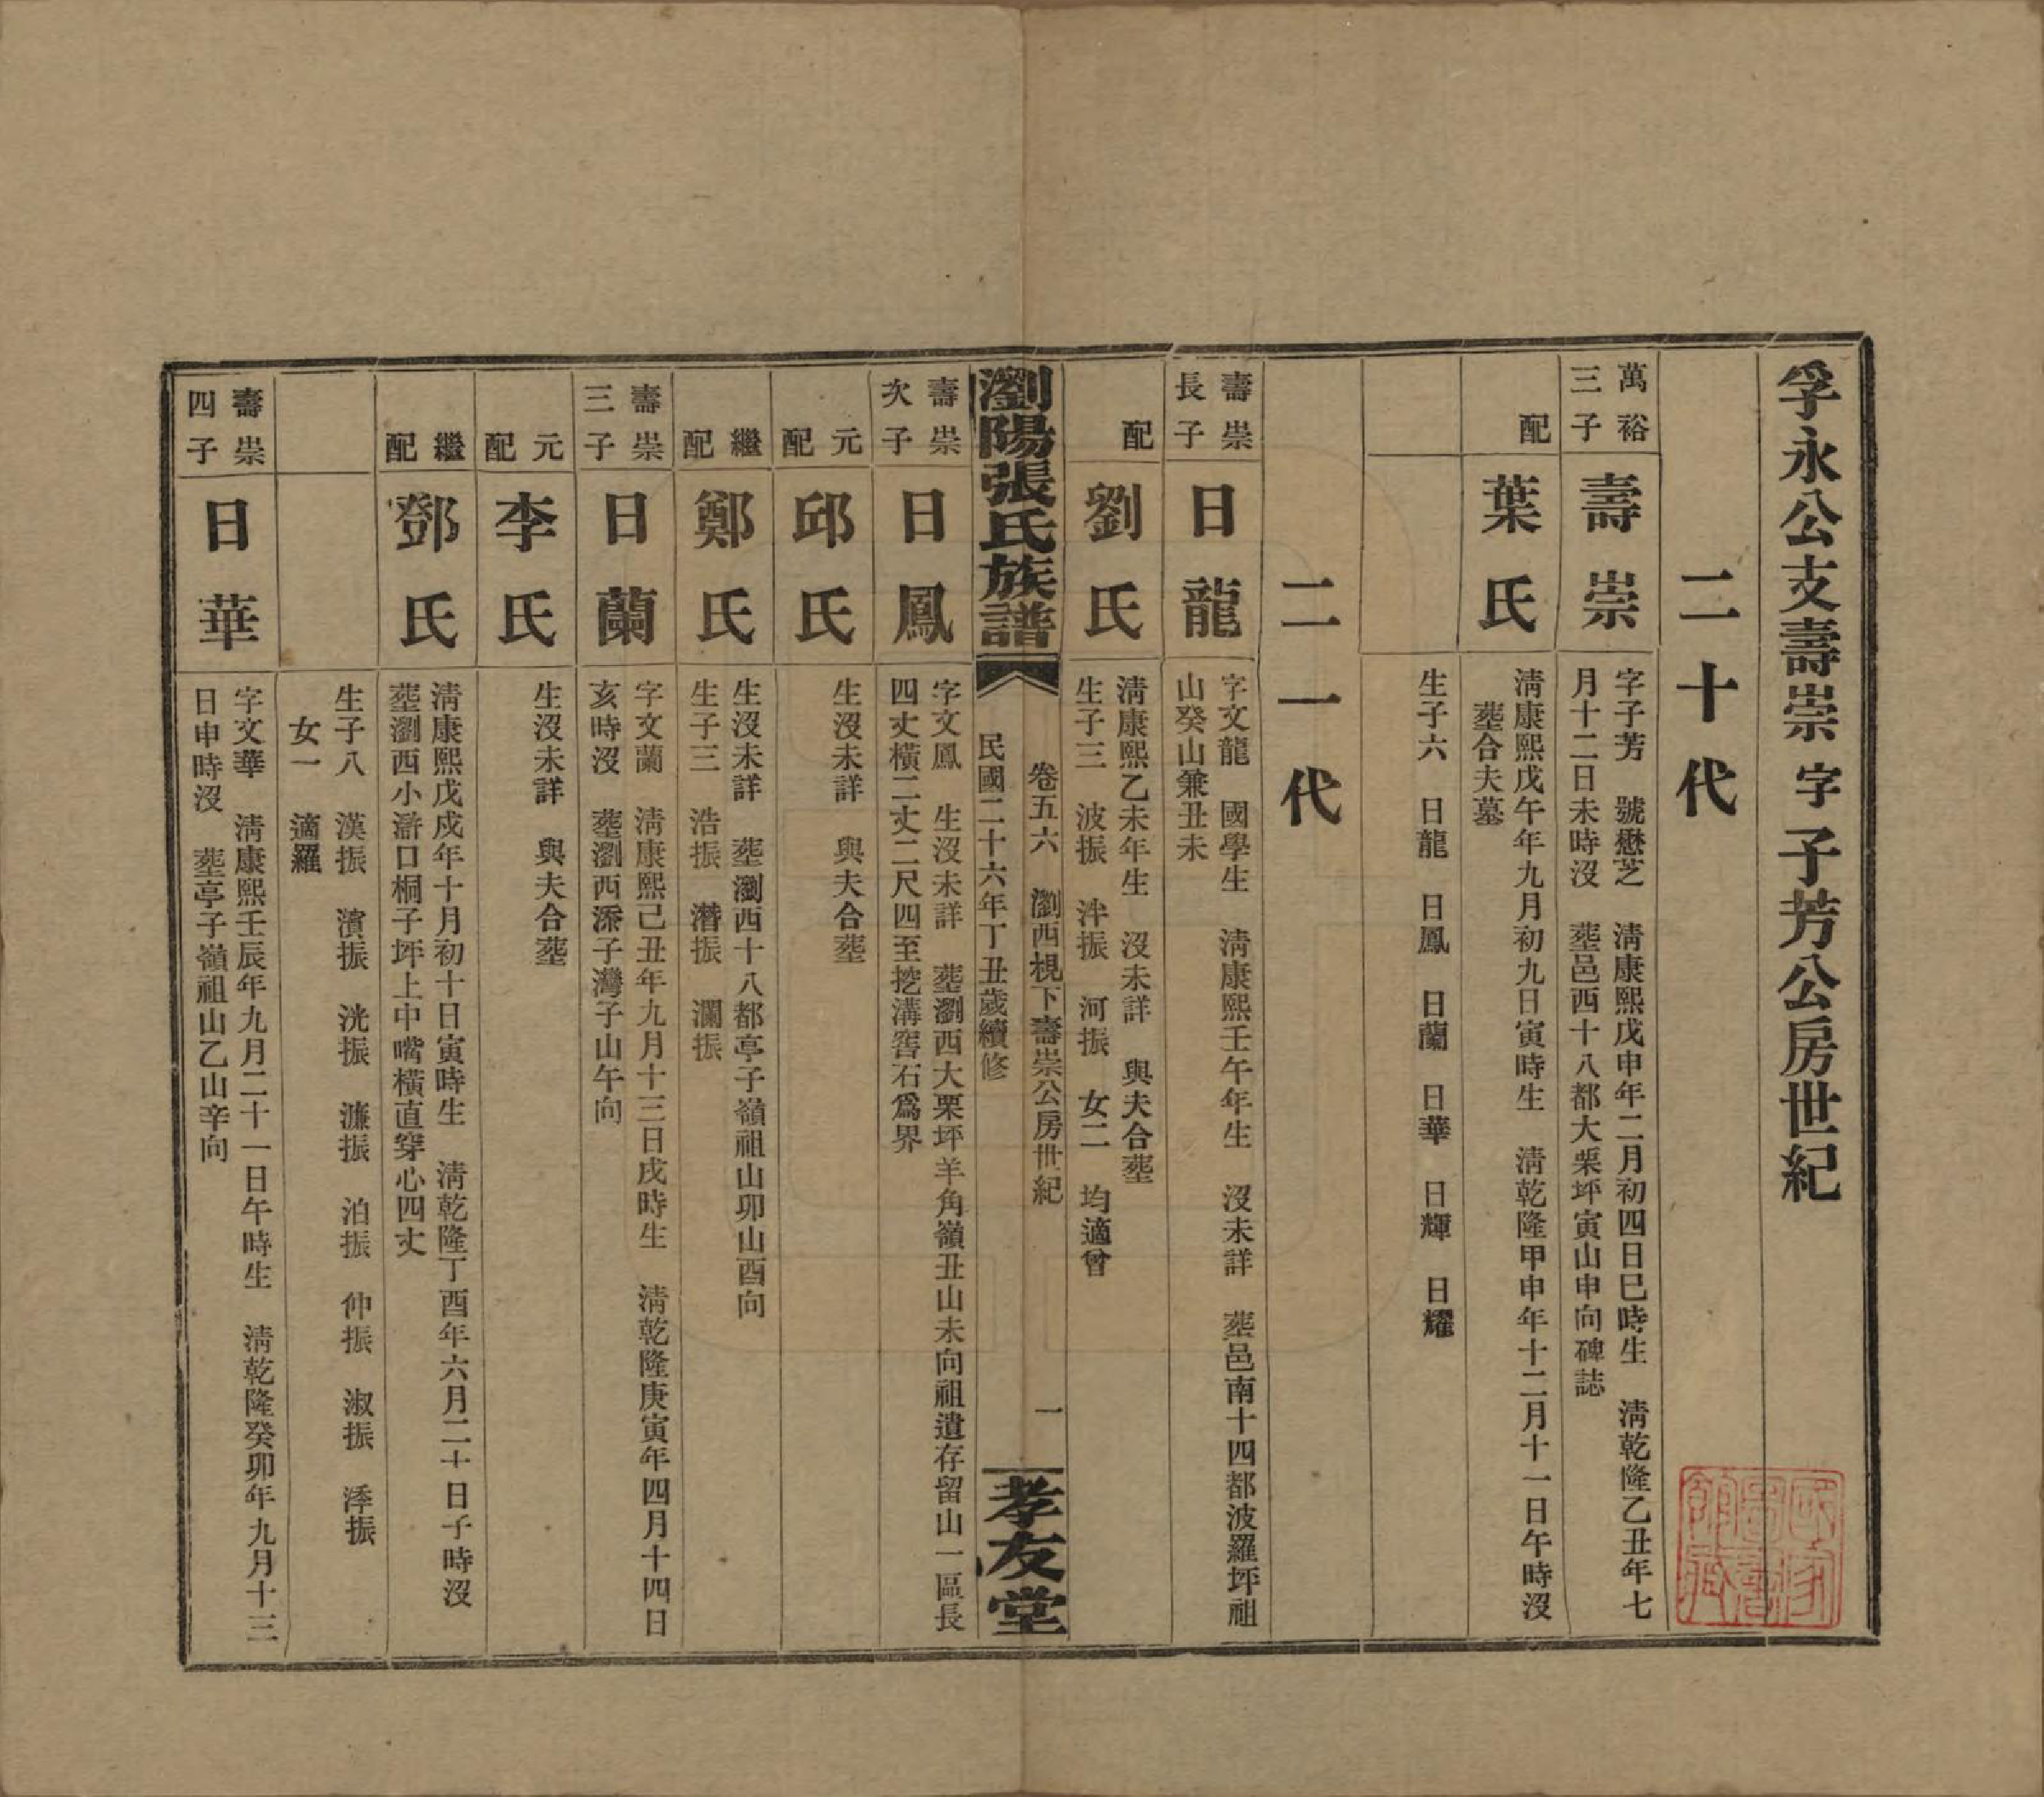 孚永公支壽崇字子芳公房世紀
二十代
萬裕
三子
壽崇
字子芳 號懋芝 淸康熙戊申年二月初四日巳時生 淸乾隆乙丑年七
月十二日未時沒 葬邑西十八都大栗坪寅山申向碑誌
配
葉氏
淸康熙戊午年九月初九日寅時生 淸乾隆甲申年十二月十一日午時沒
葬合夫墓
生子六 日龍 日鳳 日蘭 日華 日輝 日耀
二一代
壽崇
長子
日龍
字文龍 國學生 淸康熙壬午年生 沒未詳 葬邑南十四都波羅坪祖
山癸山兼丑未
配
劉氏
淸康熙乙未年生 沒未詳 與夫合葬
生子三 波振 泮振 河振 女二 均適曾
瀏陽張氏族譜
卷五六 瀏西梘下壽崇公房世紀 一
民國二十六年丁丑歲續修
孝友堂
壽崇
次子
日鳳
字文鳳 生沒未詳 葬瀏西大栗坪羊角嶺丑山未向祖遺存留山一區長
四丈橫二丈二尺四至挖溝窖石爲界
元
配
邱氏
生沒未詳 與夫合葬
繼
配
鄭氏
生沒未詳 葬瀏西十八都亭子嶺祖山卯山酉向
生子三 浩振 潛振 瀾振
壽崇
三子
日蘭
字文蘭 淸康熙己丑年九月十三日戌時生 淸乾隆庚寅年四月十四日
亥時沒 葬瀏西漆子灣子山午向
元
配
李氏
生沒未詳 與夫合葬
繼
配
鄧氏
淸康熙戊戌年十月初十日寅時生 淸乾隆丁酉年六月二十日子時沒
葬瀏西小滸口桐子坪上中嘴橫直穿心四丈
生子八 漢振 濱振 洸振 濂振 泊振 仲振 淑振 季振
女一 適羅
壽崇
四子
日華
字文華 淸康熙壬辰年九月二十一日午時生 淸乾隆癸卯年九月十三
日申時沒 葬亭子嶺祖山乙山辛向